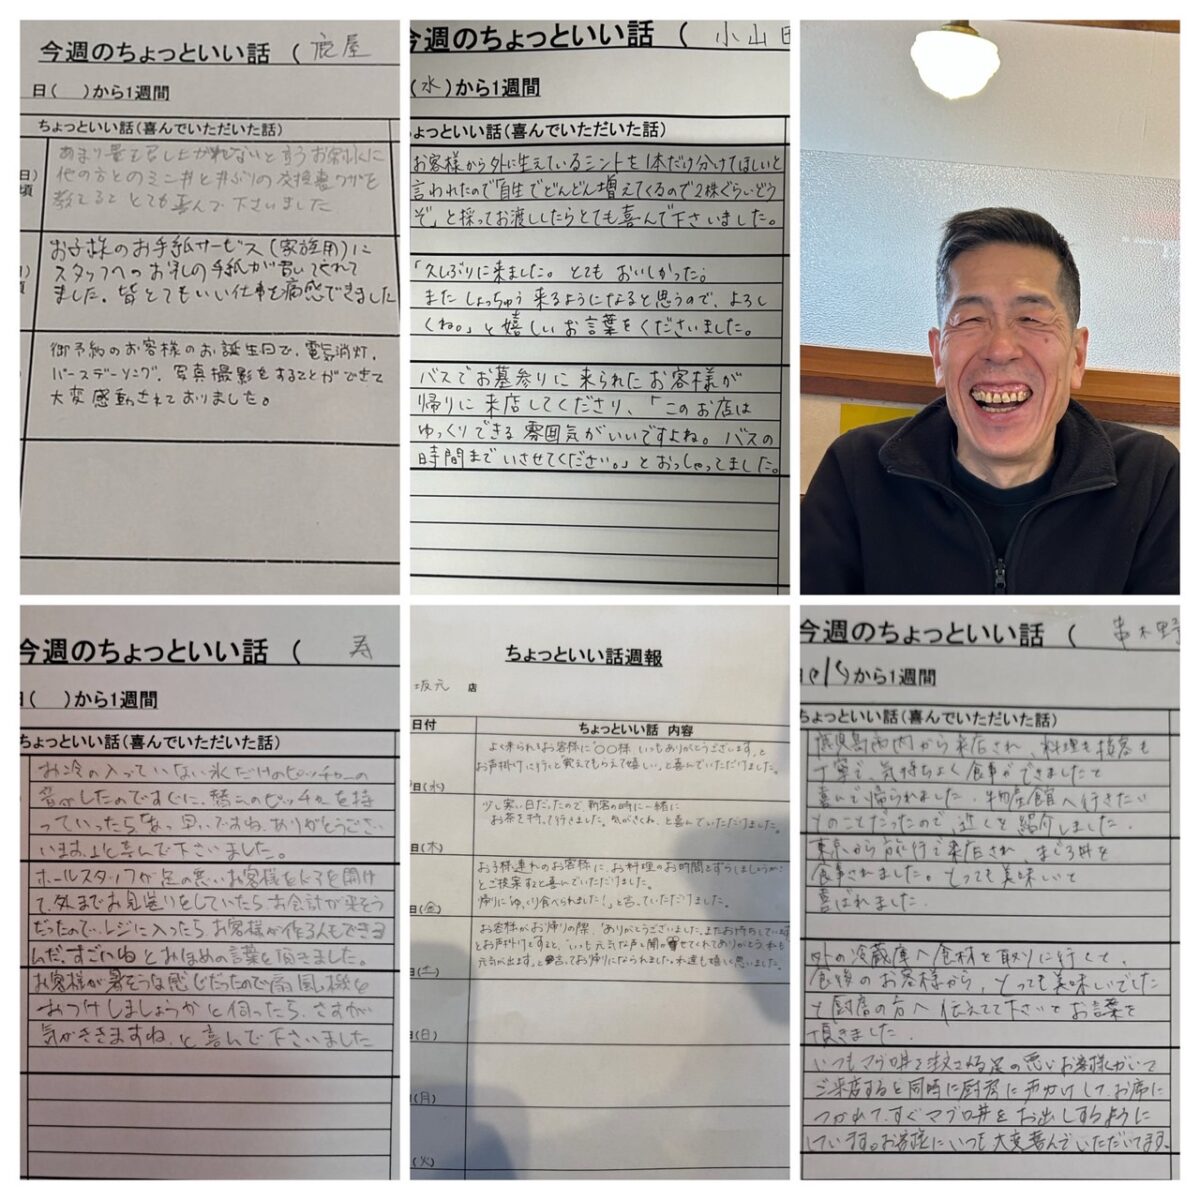 今週のちょっといい話 ( 鹿屋
日( )から1週間
ちょっといい話(喜んでいただいた話)
あまり量を召し上がれないと言うお客様に
他の方とのミニ丼と丼ぶりの交換
教えると とても喜んで下さいました
お子様のお手紙サービス(家族用)に
スタッフへのお礼の手紙が書いてくれて
ました。皆とてもいい仕事を痛感できました
御予約のお客様のお誕生日で、電気消灯、
バースデーソング、写真撮影をすることができて
大変感動されておりました。
今週のちょっといい話 ( 小山田
(水)から1週間
ちょっといい話(喜んでいただいた話)
お客様から外に生えているミントを1本だけ分けてほしいと
言われたので「自生でどんどん増えてくるので2株ぐらいどう
ぞ」と採ってお渡ししたらとても喜んで下さいました。
「久しぶりに来ました。とても おいしかった。
また しょっちゅう 来るようになると思うので、よろし
くね。」と嬉しいお言葉をくださいました。
バスでお墓参りに来られたお客様が
帰りに来店してくださり、「このお店は
ゆっくりできる雰囲気がいいですよね。バスの
時間までいさせてください。」とおっしゃってました。
今週のちょっといい話 ( 寿
日( )から1週間
ちょっといい話(喜んでいただいた話)
お冷の入っていない氷だけのピッチャーの
音がしたのですぐに、替えのピッチャーを持
っていったら「あっ 早いですね、ありがとうござい
います」と喜んで下さいました。
ホールスタッフが足の悪いお客様をドアを開け
て、外までお見送りをしていたら、お会計が来そう
だったので、レジに入ったら、お客様が作る人もできる
んだ、すごいねとおほめの言葉を頂きました。
お客様が暑そうな感じだったので扇風機を
おつけしましょうかと伺ったら、さすが
気がききますね、と喜んで下さいました
ちょっといい話週報
坂元 店
日付 ちょっといい話 内容
よく来られるお客様に「〇〇様 いつもありがとうございます」と
お声掛けに行くと覚えてもらえて嬉しい」と喜んでいただけました。
(水)
少し寒い日だったので 新客の時に一緒に
お茶を持って行きました。気がきくね、と喜んでいただけました。
(木)
お子様連れのお客様に、お料理のお時間をずらしましょうか?
とご提案すると喜んでいただけました。
帰りに「ゆっくり食べられました!」と言っていただけました。
(金)
お客様がお帰りの際、「ありがとうございました。またお待ちしています」
とお声掛けすると、「いつも元気な声し聞かせてくれてありがとう、私も
元気が出ます」と言ってお帰りになられました。私達も嬉しく思いました。
(土)
(日)
(月)
(火)
今週のちょっといい話 ( 串木野
から1週間
ちょっといい話(喜んでいただいた話)
鹿児島市内から来店され、料理も接客も
丁寧で、気持ちよく食事ができましたと
喜んで帰られました。物産館へ行きたい
とのことだったので、近くを紹介しました。
東京から旅行で来店され、まぐろ丼を
食事されました。とっても美味しいと
喜ばれました。
外の冷蔵庫へ食材を取りに行くと、
食後のお客様から、とっても美味しいでした
と厨房の方へ伝えてて下さいとお言葉を
頂きました。
いつもマグロ丼を注文される足の悪いお客様がいて
ご来店すると同時に厨房に声かけして、お席に
つかれて、すぐマグロ丼をお出しするように
しています。お客様にいつも大変喜んでいただいてます。